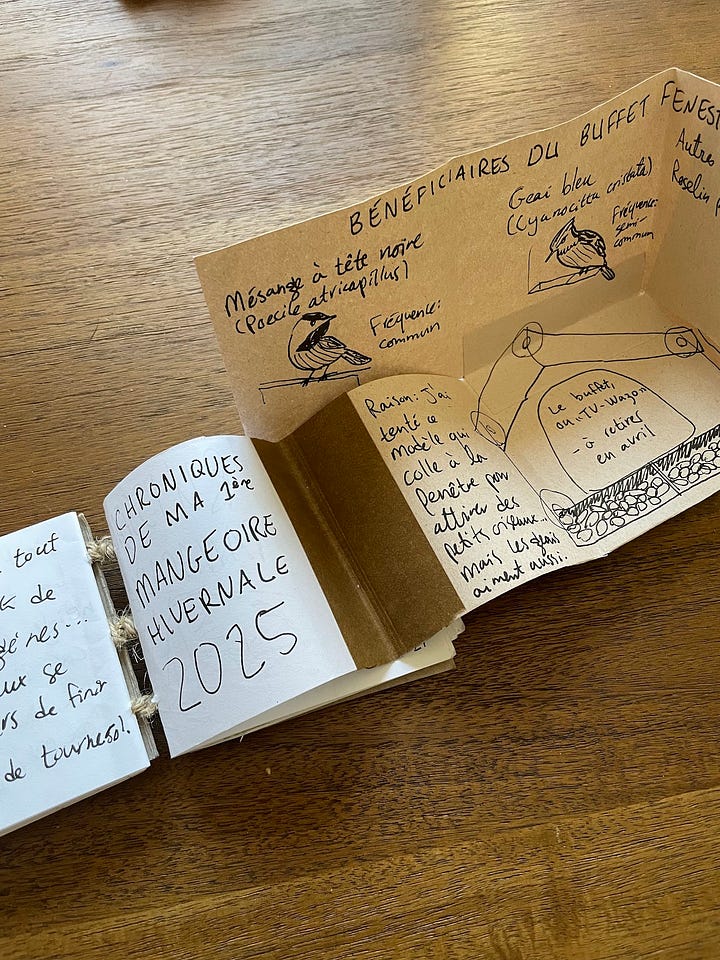 tout
de
se
de finir
de tournesol!
CHRONIQUES
DE MA 1ère
MANGEOIRE
HIVERNALE
2025
BÉNÉFICIAIRES DU BUFFET
Mésange à tête noire
(Poecile atricapillus)
Fréquence:
commun
Geai bleu
(Cyanocitta cristata)
Fréquence:
semi-
commun
Autres
Roselin
Raison: J'ai
tenté ce
modèle qui
colle à la
fenêtre pour
attirer des
petits oiseaux...
mais les geais
aiment aussi.
Le buffet,
ou "TV-Wagon"
- à retirer
en avril